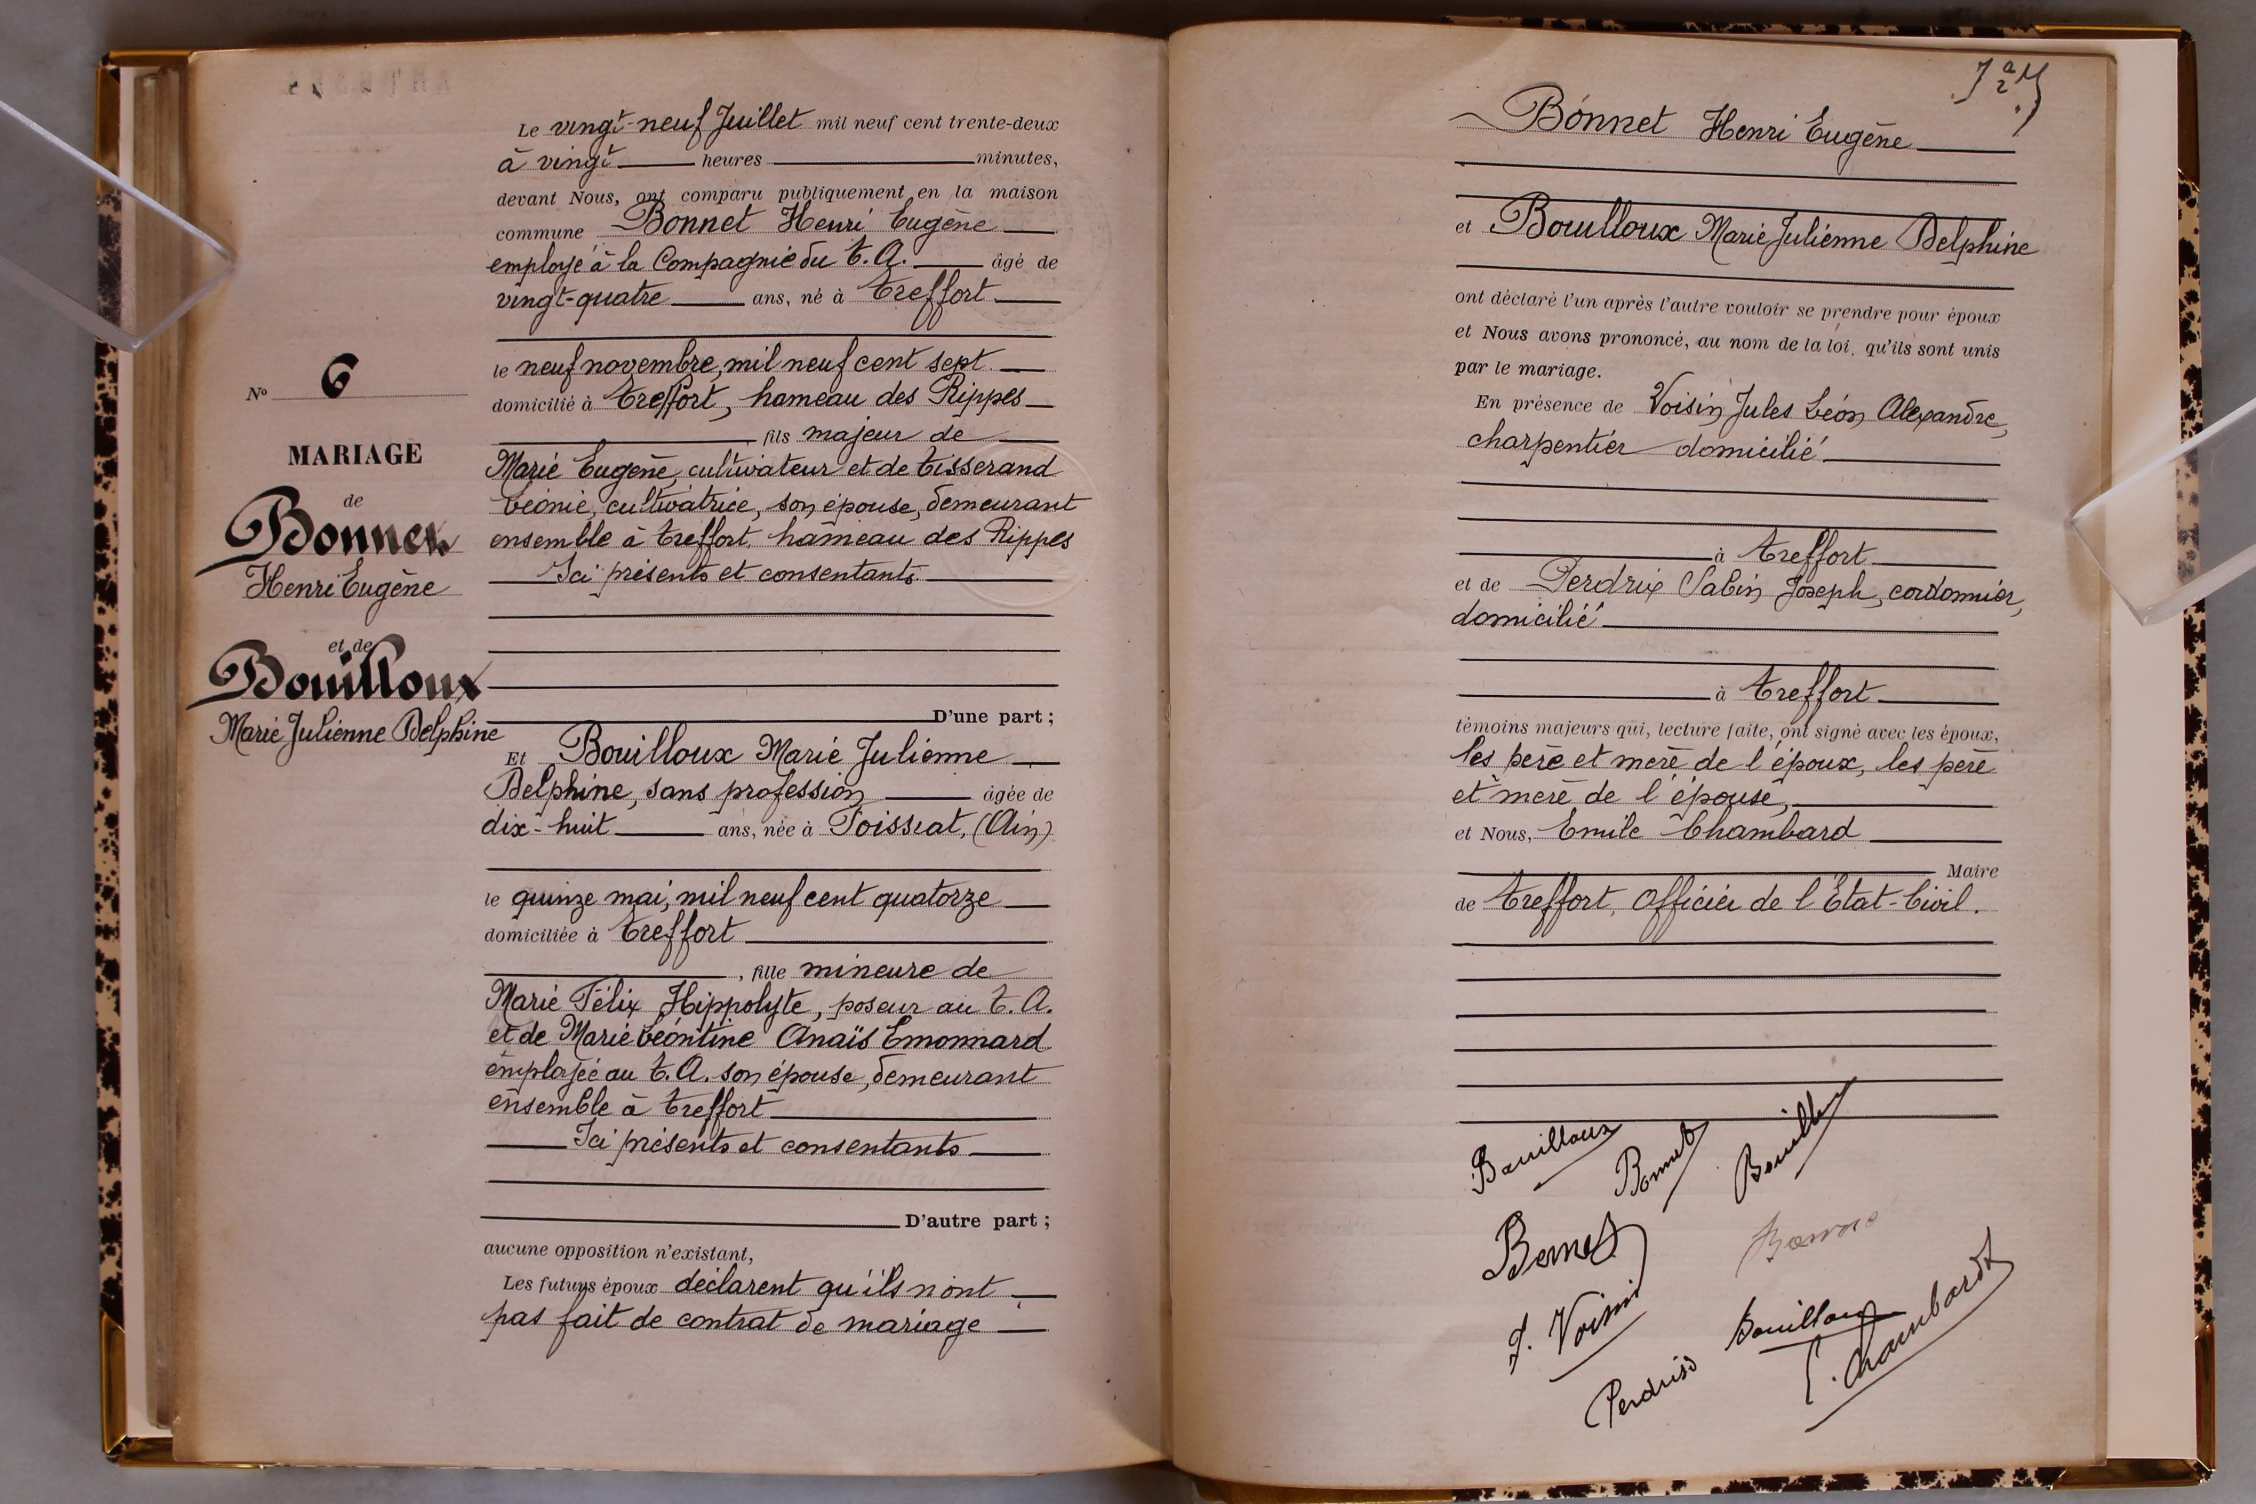 Le vingt-neuf Juillet mil neuf cent trente-deux
à vingt heures minutes,
devant Nous, ont comparu publiquement en la maison
commune Bonnet Henri Eugène
employé à la Compagnie du t. A. âgé de
vingt-quatre ans, né à Treffort
le neuf novembre, mil neuf cent sept
domicilié à Treffort, hameau des Rippes
, fils majeur de
Marie Eugène, cultivateur et de Tisserand
Léonie, cultivatrice, son épouse, demeurant
ensemble à Treffort, hameau des Rippes
Ici présents et consentants
D'une part ;
Et Bouilloux Marie Julienne
Delphine, sans profession âgée de
dix-huit ans, née à Poissiat, (Ain)
le quinze mai, mil neuf cent quatorze
domiciliée à Treffort
, fille mineure de
Marie Félix Hippolyte, poseur au t. A.
et de Marie Léontine Anaïs Emonnard
employée au t. A. son épouse, demeurant
ensemble à Treffort
Ici présents et consentants
D'autre part ;
aucune opposition n'existant,
Les futurs époux déclarent qu'ils n'ont
pas fait de contrat de mariage
No 6
MARIAGE
de
Bonnet
Henri Eugène
et de
Bouilloux
Marie Julienne Delphine
Bonnet Henri Eugène
et Bouilloux Marie Julienne Delphine
ont déclaré l'un après l'autre vouloir se prendre pour époux
et Nous avons prononcé, au nom de la loi, qu'ils sont unis
par le mariage.
En présence de Voisin Jules Léon Alexandre,
charpentier domicilié
à Treffort
et de Perdrix Sabin Joseph, cordonnier,
domicilié
à Treffort
témoins majeurs qui, lecture faite, ont signé avec les époux,
les père et mère de l'époux, les père
et mère de l'épouse,
et Nous, Emile Chambard
Maire
de Treffort, Officier de l'Etat-Civil.
Bouilloux Bonnet Bouilloux
Bonnet
J. Voisin
Bouilloux
Perdrix
E. Chambard